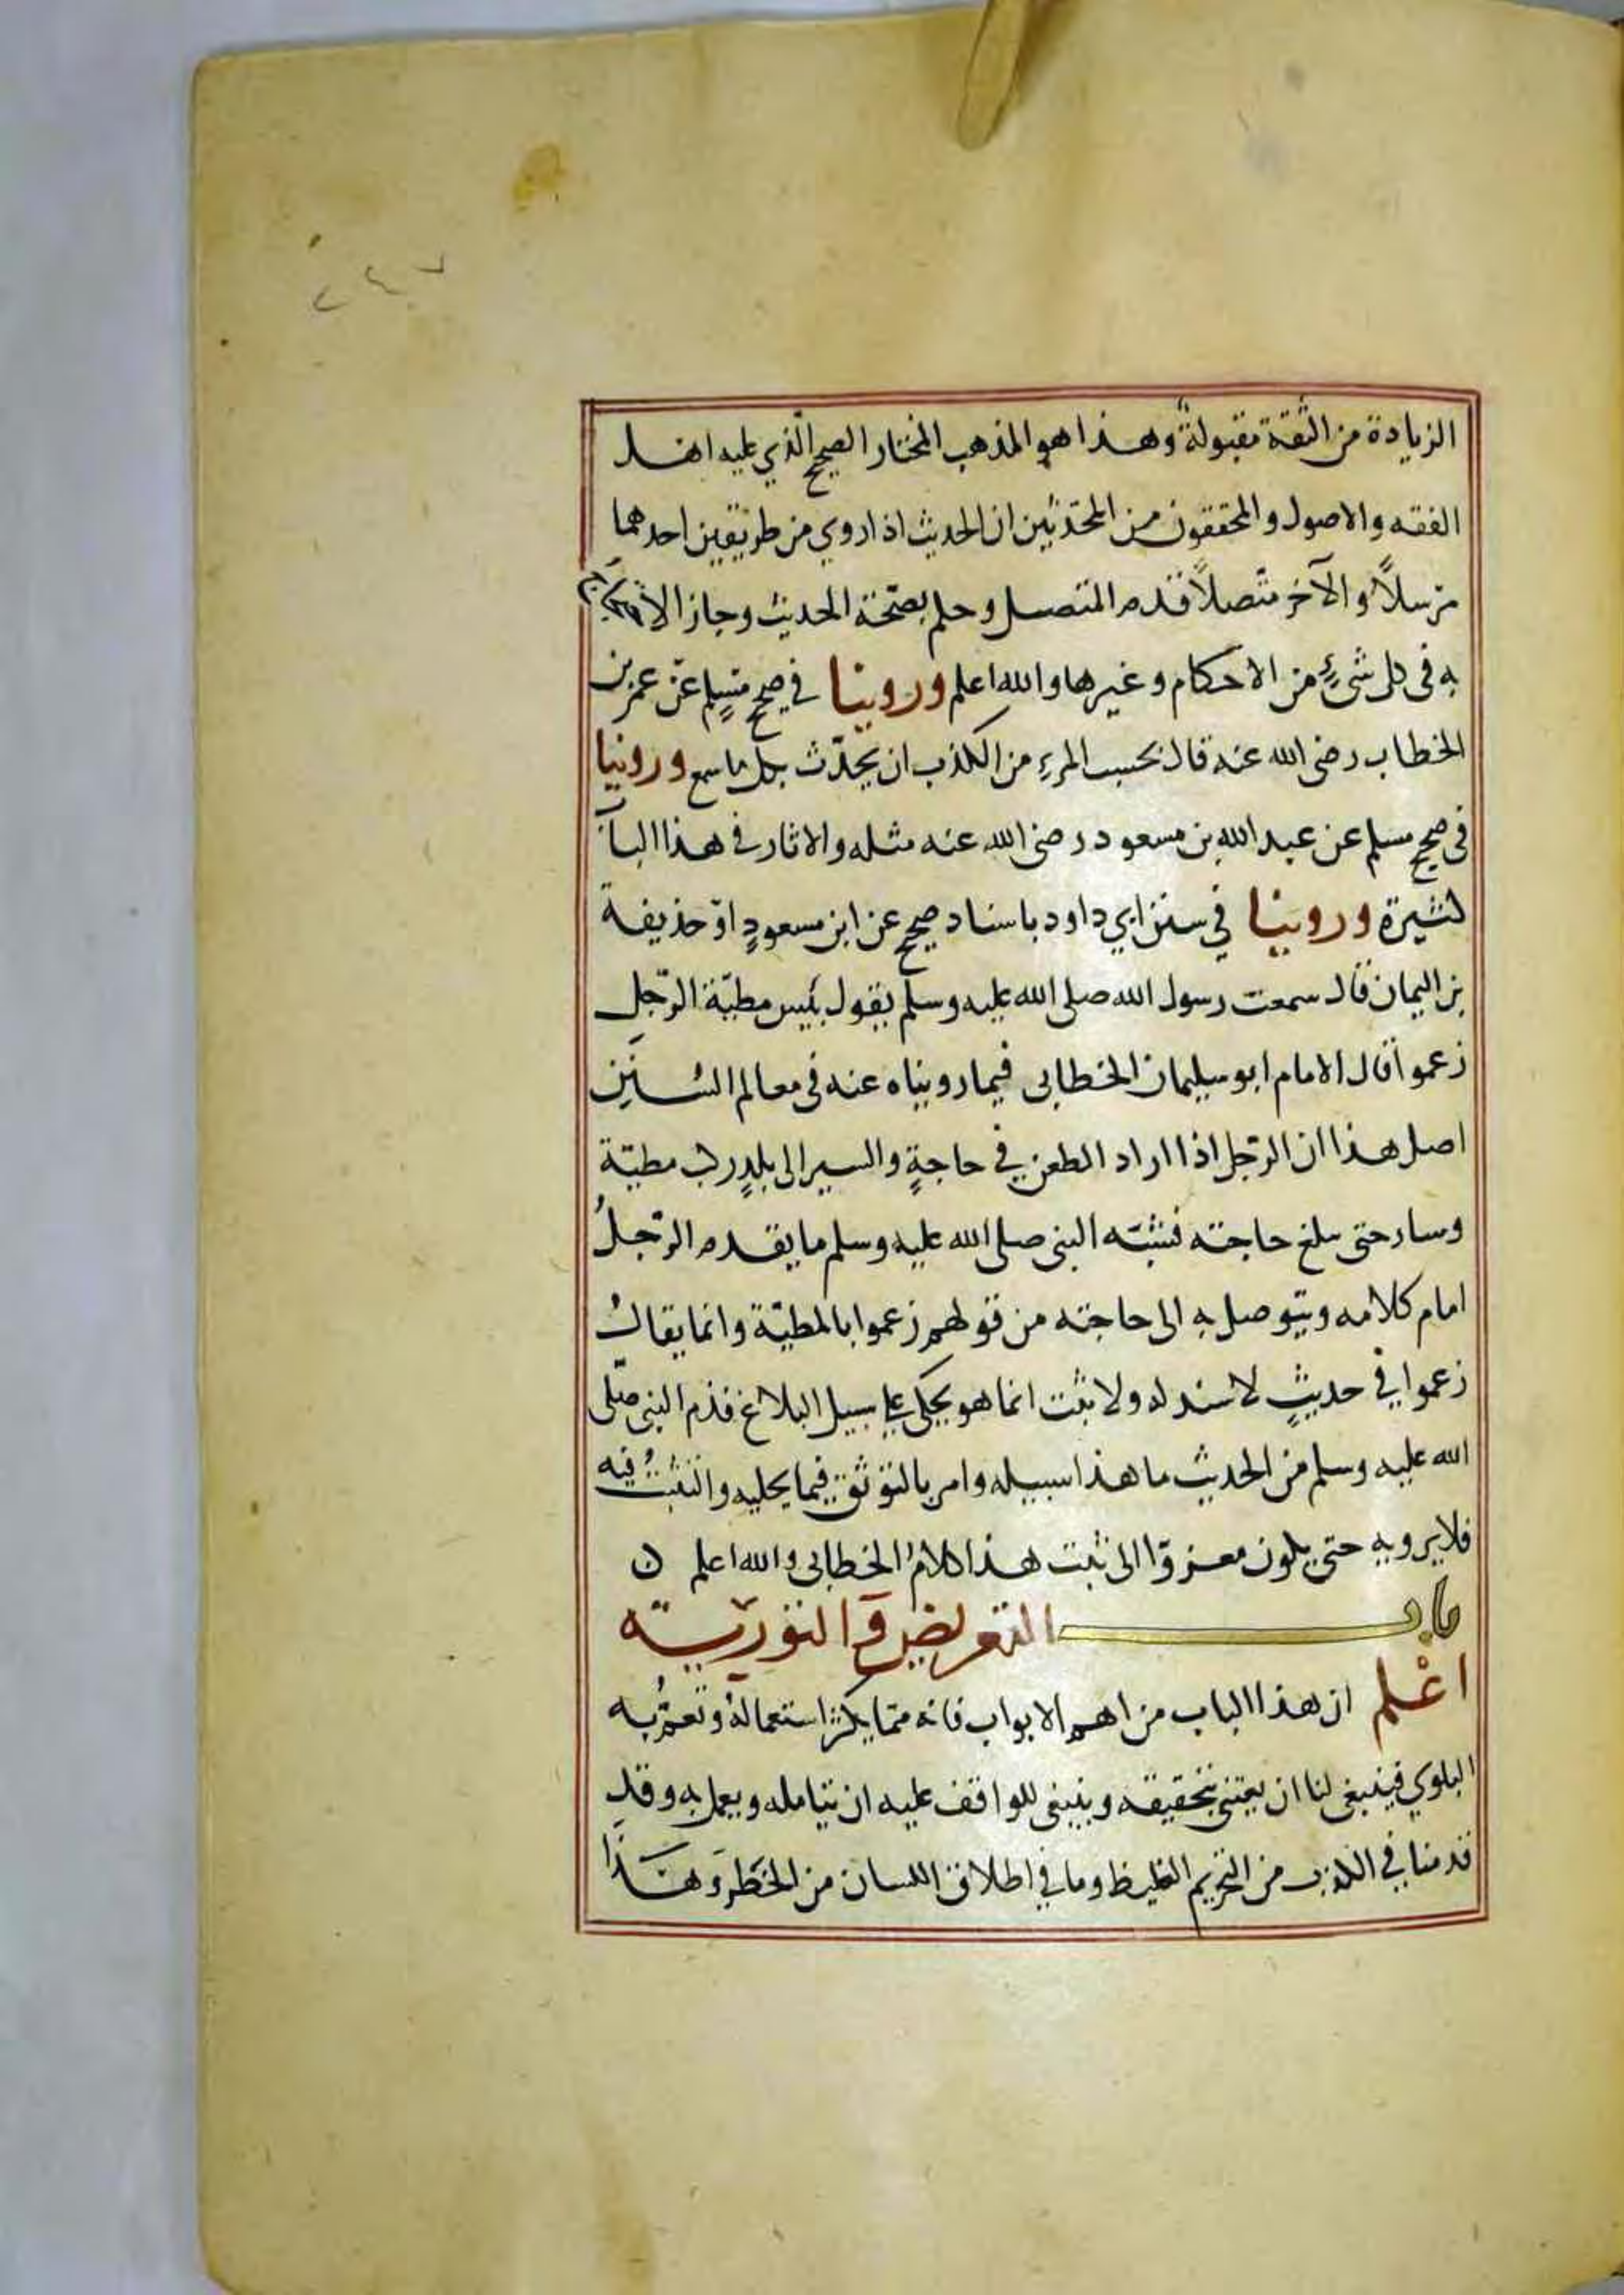 الزيادة من الثقة مقبولة وهذا هو المذهب المختار الصحيح الذي عليه اهل
الفقه والاصول والمحققون من المحدّثين ان الحديث اذا روي من طريقين احدهما
مرسلاً والآخر متّصلاً قدم المتصل وحكم بصحّة الحديث وجاز الاحتجاج
به في كل شئٍ من الاحكام وغيرها والله اعلم وروينا في صحيح مسلم عن عمر بن
الخطاب رضى الله عنه قال بحسب المرءِ من الكذب ان يحدّث بكل ما سمع وروينا
في صحيح مسلم عن عبد الله بن مسعود رضى الله عنه مثله والاثار في هذا الباب
كثيرة وروينا في سنن ابي داود باسناد صحيح عن ابن مسعودٍ او حذيفة
بن اليمان قال سمعت رسول الله صلى الله عليه وسلم يقول بئيس مطيّة الرّجل
زعموا قال الامام ابو سليمان الخطابى فيما رويناه عنه فى معالم السنين
اصل هذا ان الرّجل اذا اراد الطعن في حاجةٍ والسير الى بلدٍ ركب مطيّة
وسار حتى بلغ حاجته فشبّه النبى صلى الله عليه وسلم ما يقدم الرّجلُ
امام كلامه ويتوصل به الى حاجته من قولهم زعموا بالمطيّة وانما يقالُ
زعموا في حديثٍ لا سند له ولا ثبت انما هو يحكى على سبيل البلاغ فذم النبى صلّى
الله عليه وسلم من الحديث ما هذا سبيله وامر بالتوثق فيما يحكيه والتثبتُ فيه
فلا يرويه حتى يكون معزوّا الى ثبت هذا كلامُ الخطابى والله اعلم ن
باب التعريض والتورّية
اعْلم ان هذا الباب من اهم الابواب فانه ممّا يكثر استعمالهُ وتعمّ به
البلوي فينبغى لنا ان يعتنى بتحقيقه وينبغى للواقف عليه ان يتأمله ويعمل به وقد
قدمنا في الكذب من التحريم الغليظ وما في اطلاق اللسان من الخَطرِ وهذا